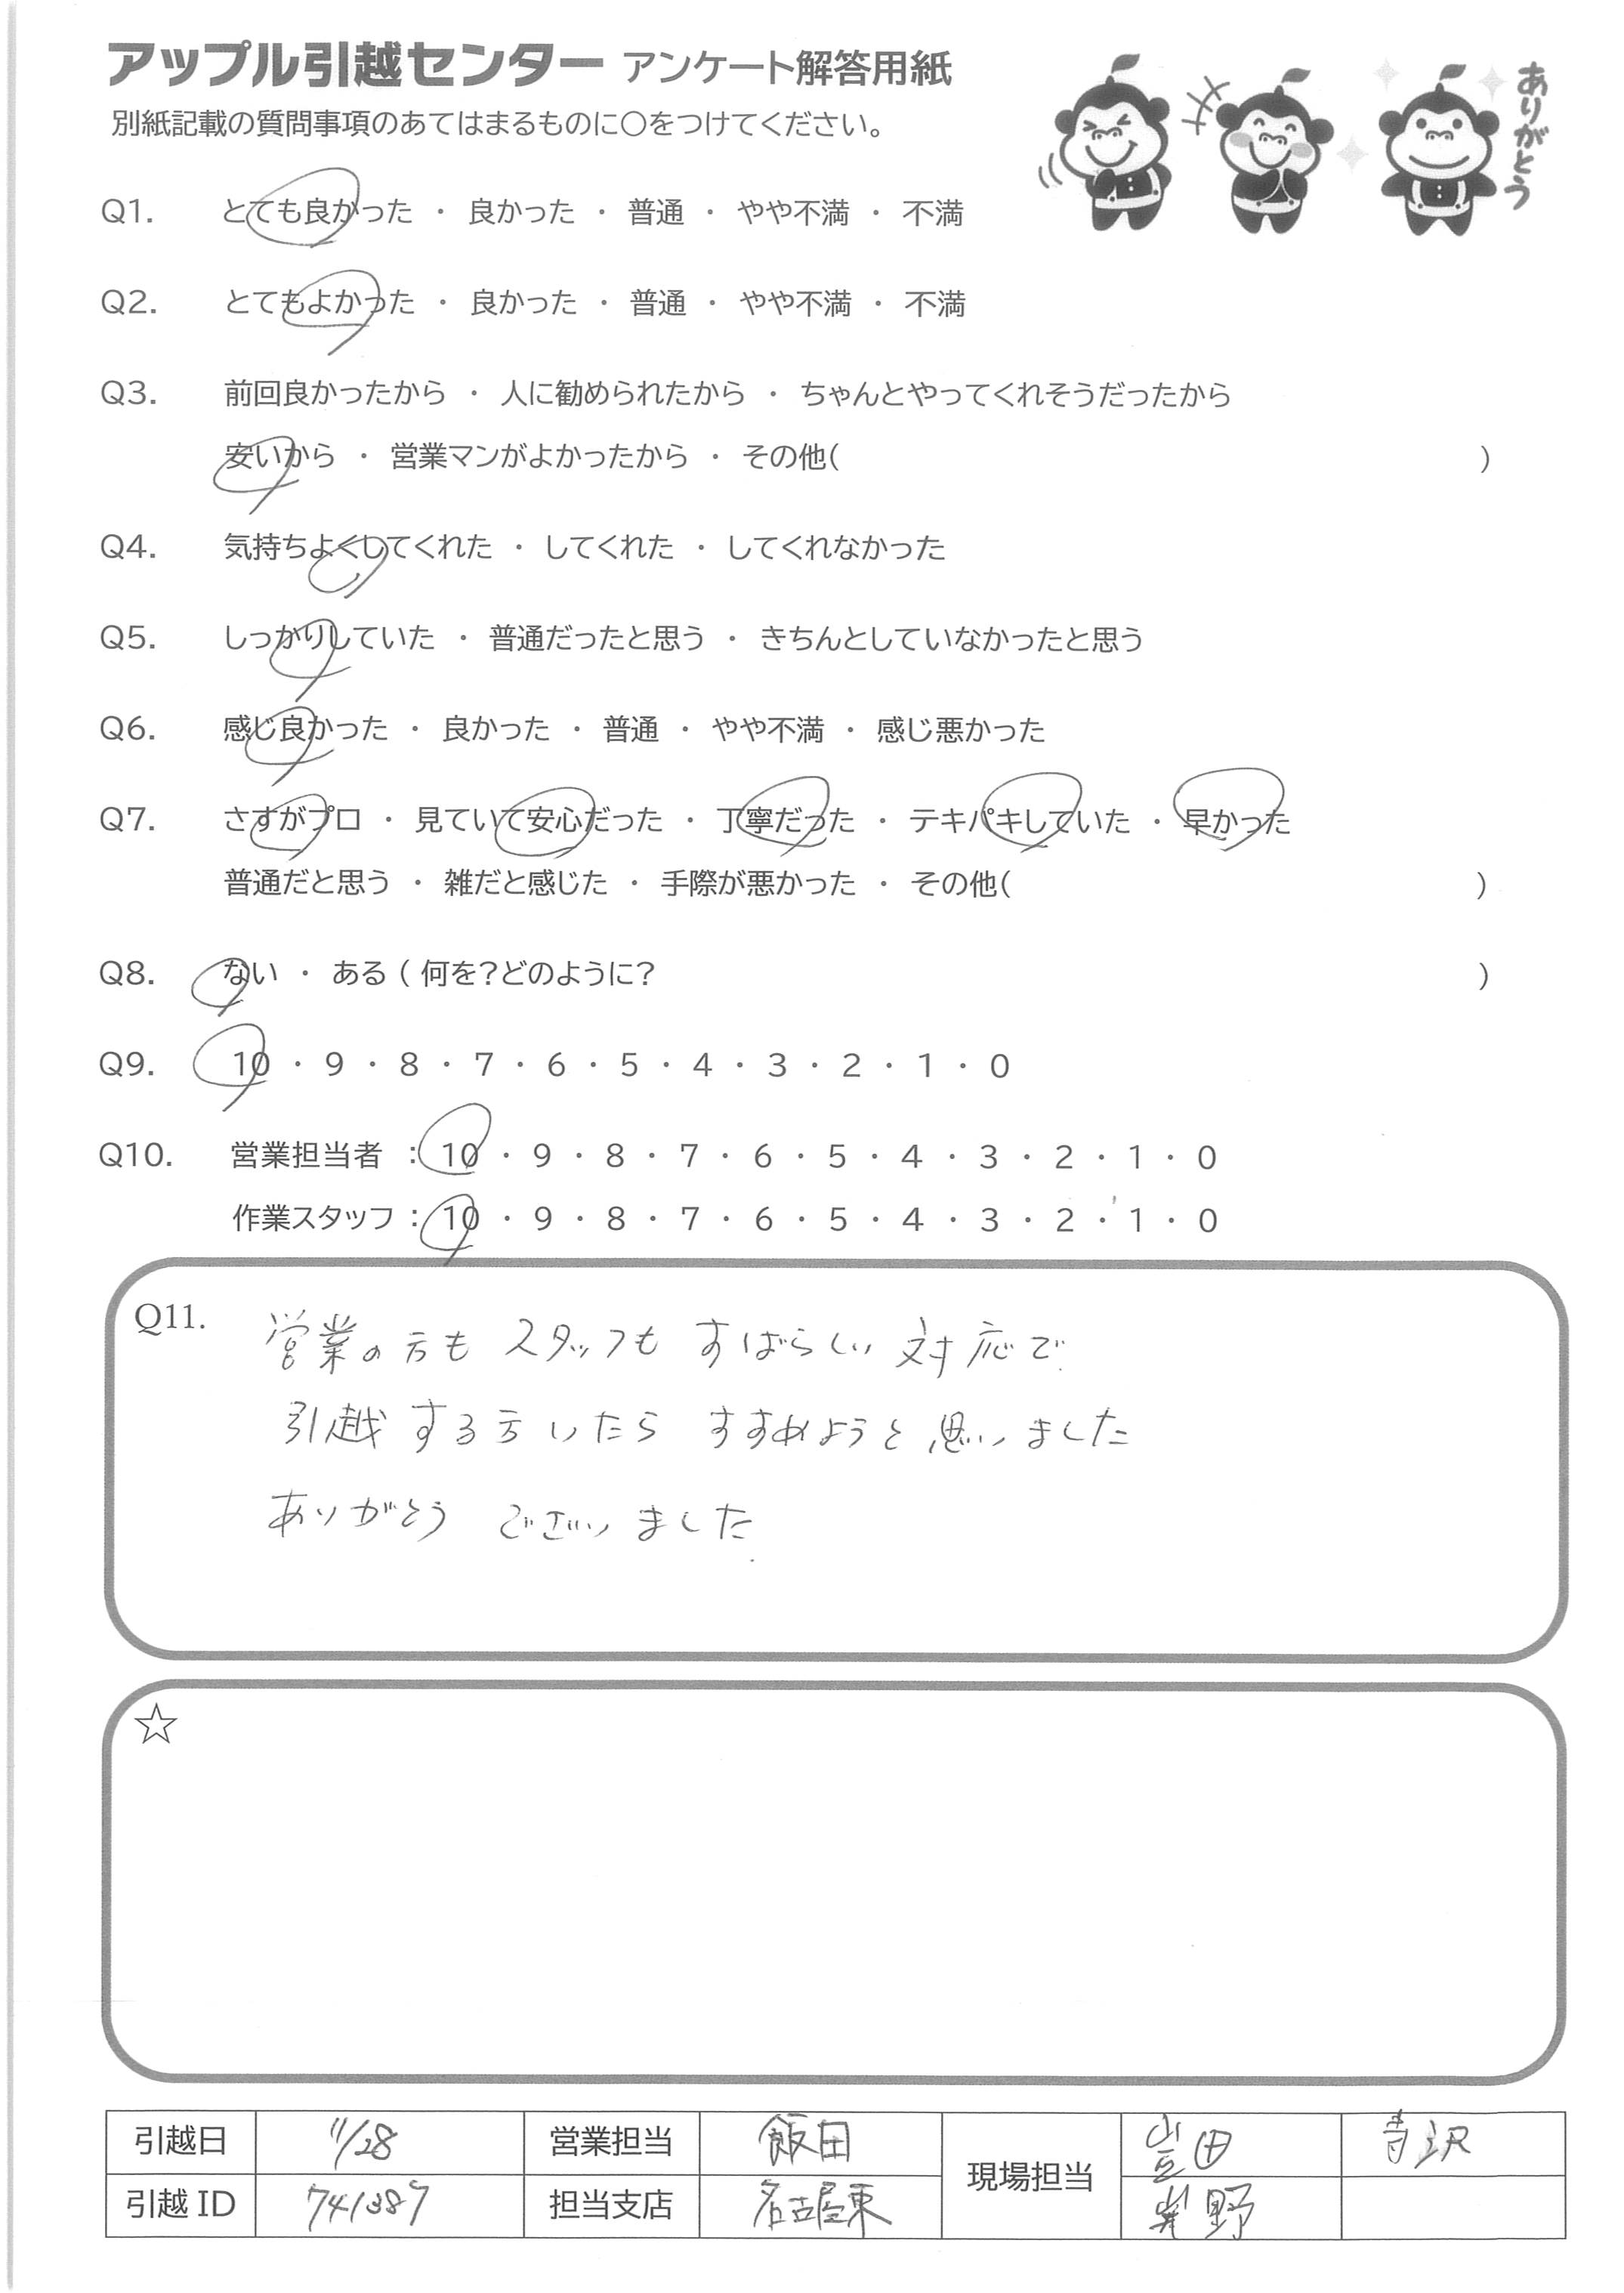 アップル引越センター アンケート解答用紙
ありがとう
別紙記載の質問事項のあてはまるものに○をつけてください。
Q1. とても良かった ・ 良かった ・ 普通 ・ やや不満 ・ 不満
Q2. とてもよかった ・ 良かった ・ 普通 ・ やや不満 ・ 不満
Q3. 前回良かったから ・ 人に勧められたから ・ ちゃんとやってくれそうだったから
安いから ・ 営業マンがよかったから ・ その他( )
Q4. 気持ちよくしてくれた ・ してくれた ・ してくれなかった
Q5. しっかりしていた ・ 普通だったと思う ・ きちんとしていなかったと思う
Q6. 感じ良かった ・ 良かった ・ 普通 ・ やや不満 ・ 感じ悪かった
Q7. さすがプロ ・ 見ていて安心だった ・ 丁寧だった ・ テキパキしていた ・ 早かった
普通だと思う ・ 雑だと感じた ・ 手際が悪かった ・ その他( )
Q8. ない ・ ある ( 何を?どのように? )
Q9. 10 ・ 9 ・ 8 ・ 7 ・ 6 ・ 5 ・ 4 ・ 3 ・ 2 ・ 1 ・ 0
Q10. 営業担当者 : 10 ・ 9 ・ 8 ・ 7 ・ 6 ・ 5 ・ 4 ・ 3 ・ 2 ・ 1 ・ 0
作業スタッフ : 10 ・ 9 ・ 8 ・ 7 ・ 6 ・ 5 ・ 4 ・ 3 ・ 2 ・ 1 ・ 0
Q11. 営業の方も スタッフも すばらしい 対応で
引越する方いたら すすめようと思いました
ありがとう ございました
☆
引越日 11/28 営業担当 飯田 現場担当 青沢
引越ID 741387 担当支店 名古屋東